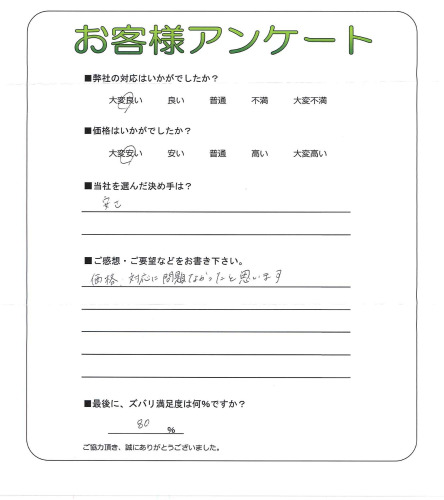 お客様アンケート
■弊社の対応はいかがでしたか？
大変良い 良い 普通 不満 大変不満
■価格はいかがでしたか？
大変安い 安い 普通 高い 大変高い
■当社を選んだ決め手は？
安さ
■ご感想・ご要望などをお書き下さい。
価格、対応に問題なかったと思います
■最後に、ズバリ満足度は何％ですか？
80 %
ご協力頂き、誠にありがとうございました。